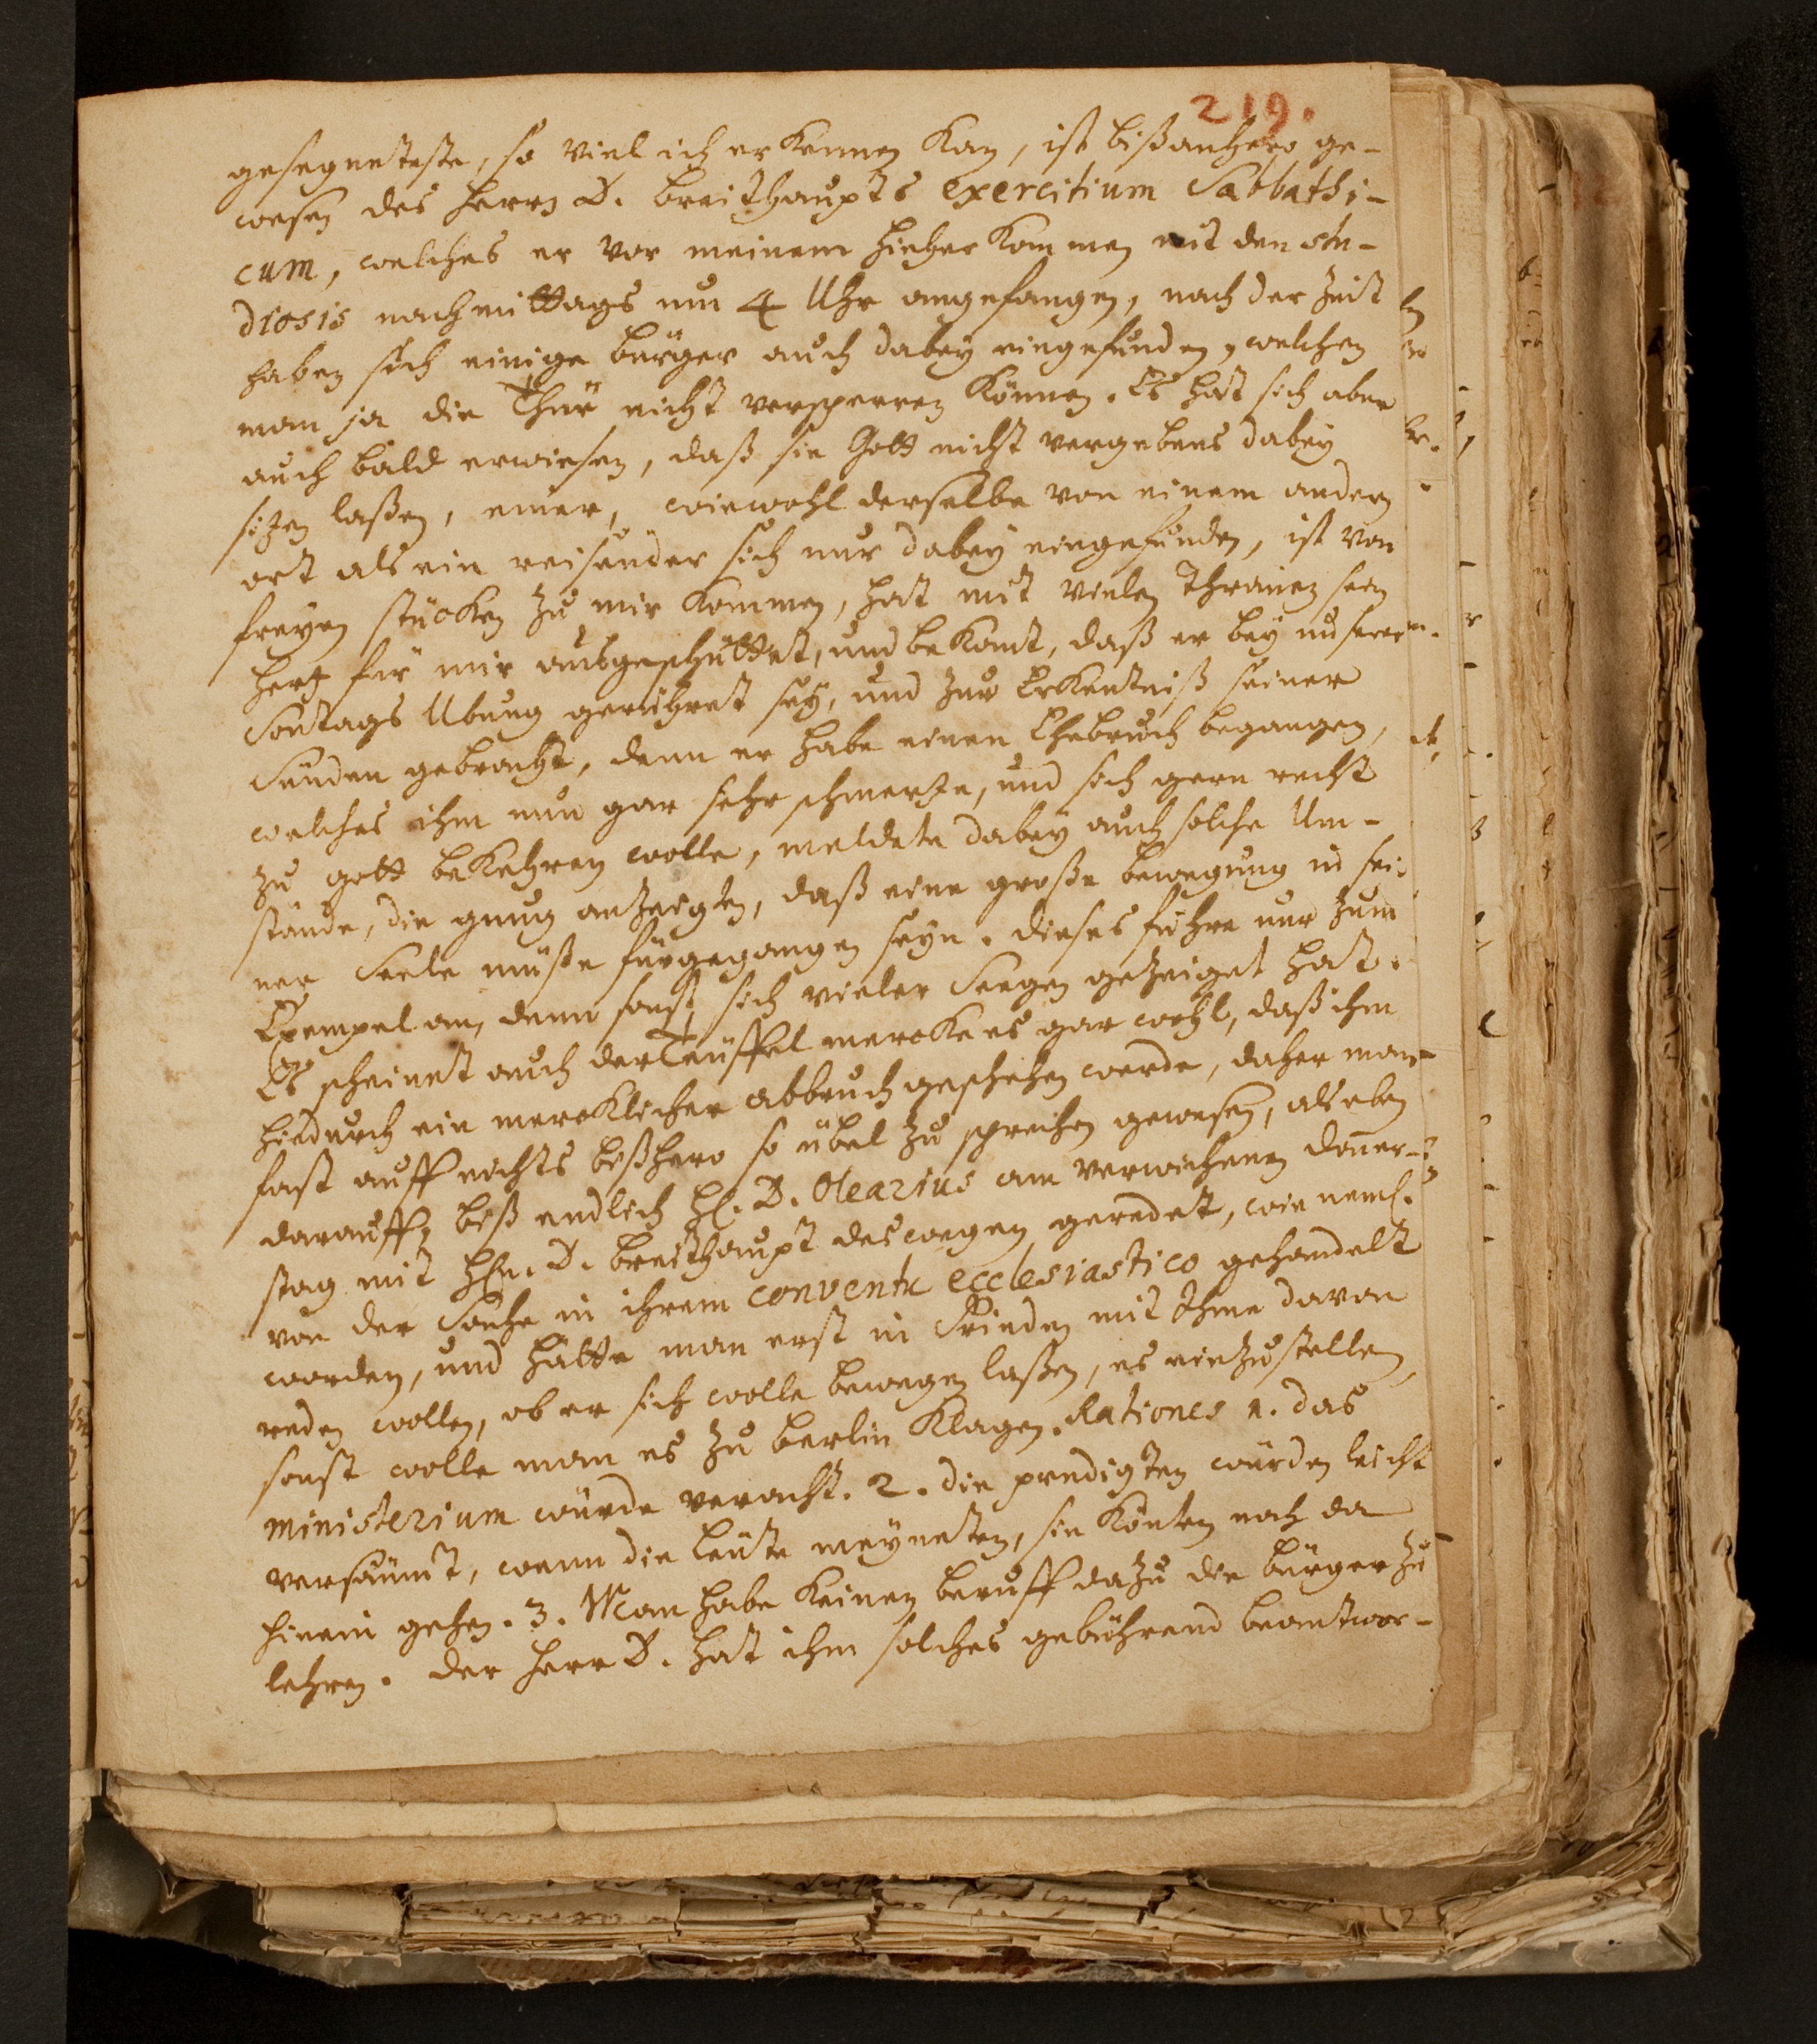 219.
gesegneteste, so viel ich erkennen kan, ist bißanhero ge-
wesen des Herrn D. Breithaupts exercitium Sabbathi-
cum, welches er vor meinem hieher kommen mit den stu-
diosis nachmittags um 4 Uhr angefangen, nach der Zeit
haben sich einige bürger auch dabey eingefunden, welchen
man ja die Thür nicht versperren können. Es hat sich aber
auch bald erwiesen, daß sie Gott nicht vergebens dabey
sitzen laßen, einer, wiewohl derselbe von einem andern
ort als ein reisender sich nur dabey eingefunden, ist von
freyen stücken zu mir kommen, hat mit vielen Thränen sein
Hertz für mir ausgeschüttet, und bekant, daß er bey unserer
Sontags Ubung gerühret sey, und zur Erkentniß seiner
Sünden gebracht, denn er habe einen Ehebruch begangen,
welches ihm nun gar sehr schmertze, und sich gern recht
zu gott bekehren wolle, meldete dabey auch solche Um-
stände, die gnug anzeigten, daß eine große bewegung in sei-
ner Seele müße fürgegangen seyn. dieses führe nur zum
Exempel an, denn sonst sich vieler Seegen gezeiget hat.
Es scheinet auch der Teüffel mercke es gar wohl, daß ihm
hiedurch ein mercklicher abbruch geschehen werde, daher man
fast auff nichts bißhero so übel zu sprechen gewesen, als eben
darauff, biß endlich H. D. Olearius am verwichenen donner-
stag mit Hn. D. Breithaupt deswegen geredet, wie neml.
von der Sache in ihrem conventu ecclesiastico gehandelt
worden, und hätte man erst in Frieden mit Ihme davon
reden wollen, ob er sich wolle bewegen laßen, es einzustellen,
sonst wolle man es zu Berlin klagen. Rationes 1. das
ministerium würde veracht. 2. die predigten würden leicht
versäumt, wenn die leüte meyneten, sie könten noch da
hinein gehen. 3. Man habe keinen beruff dazu die bürger zu
lehren. der Herr D. hat ihm solches gebührend beantwor-